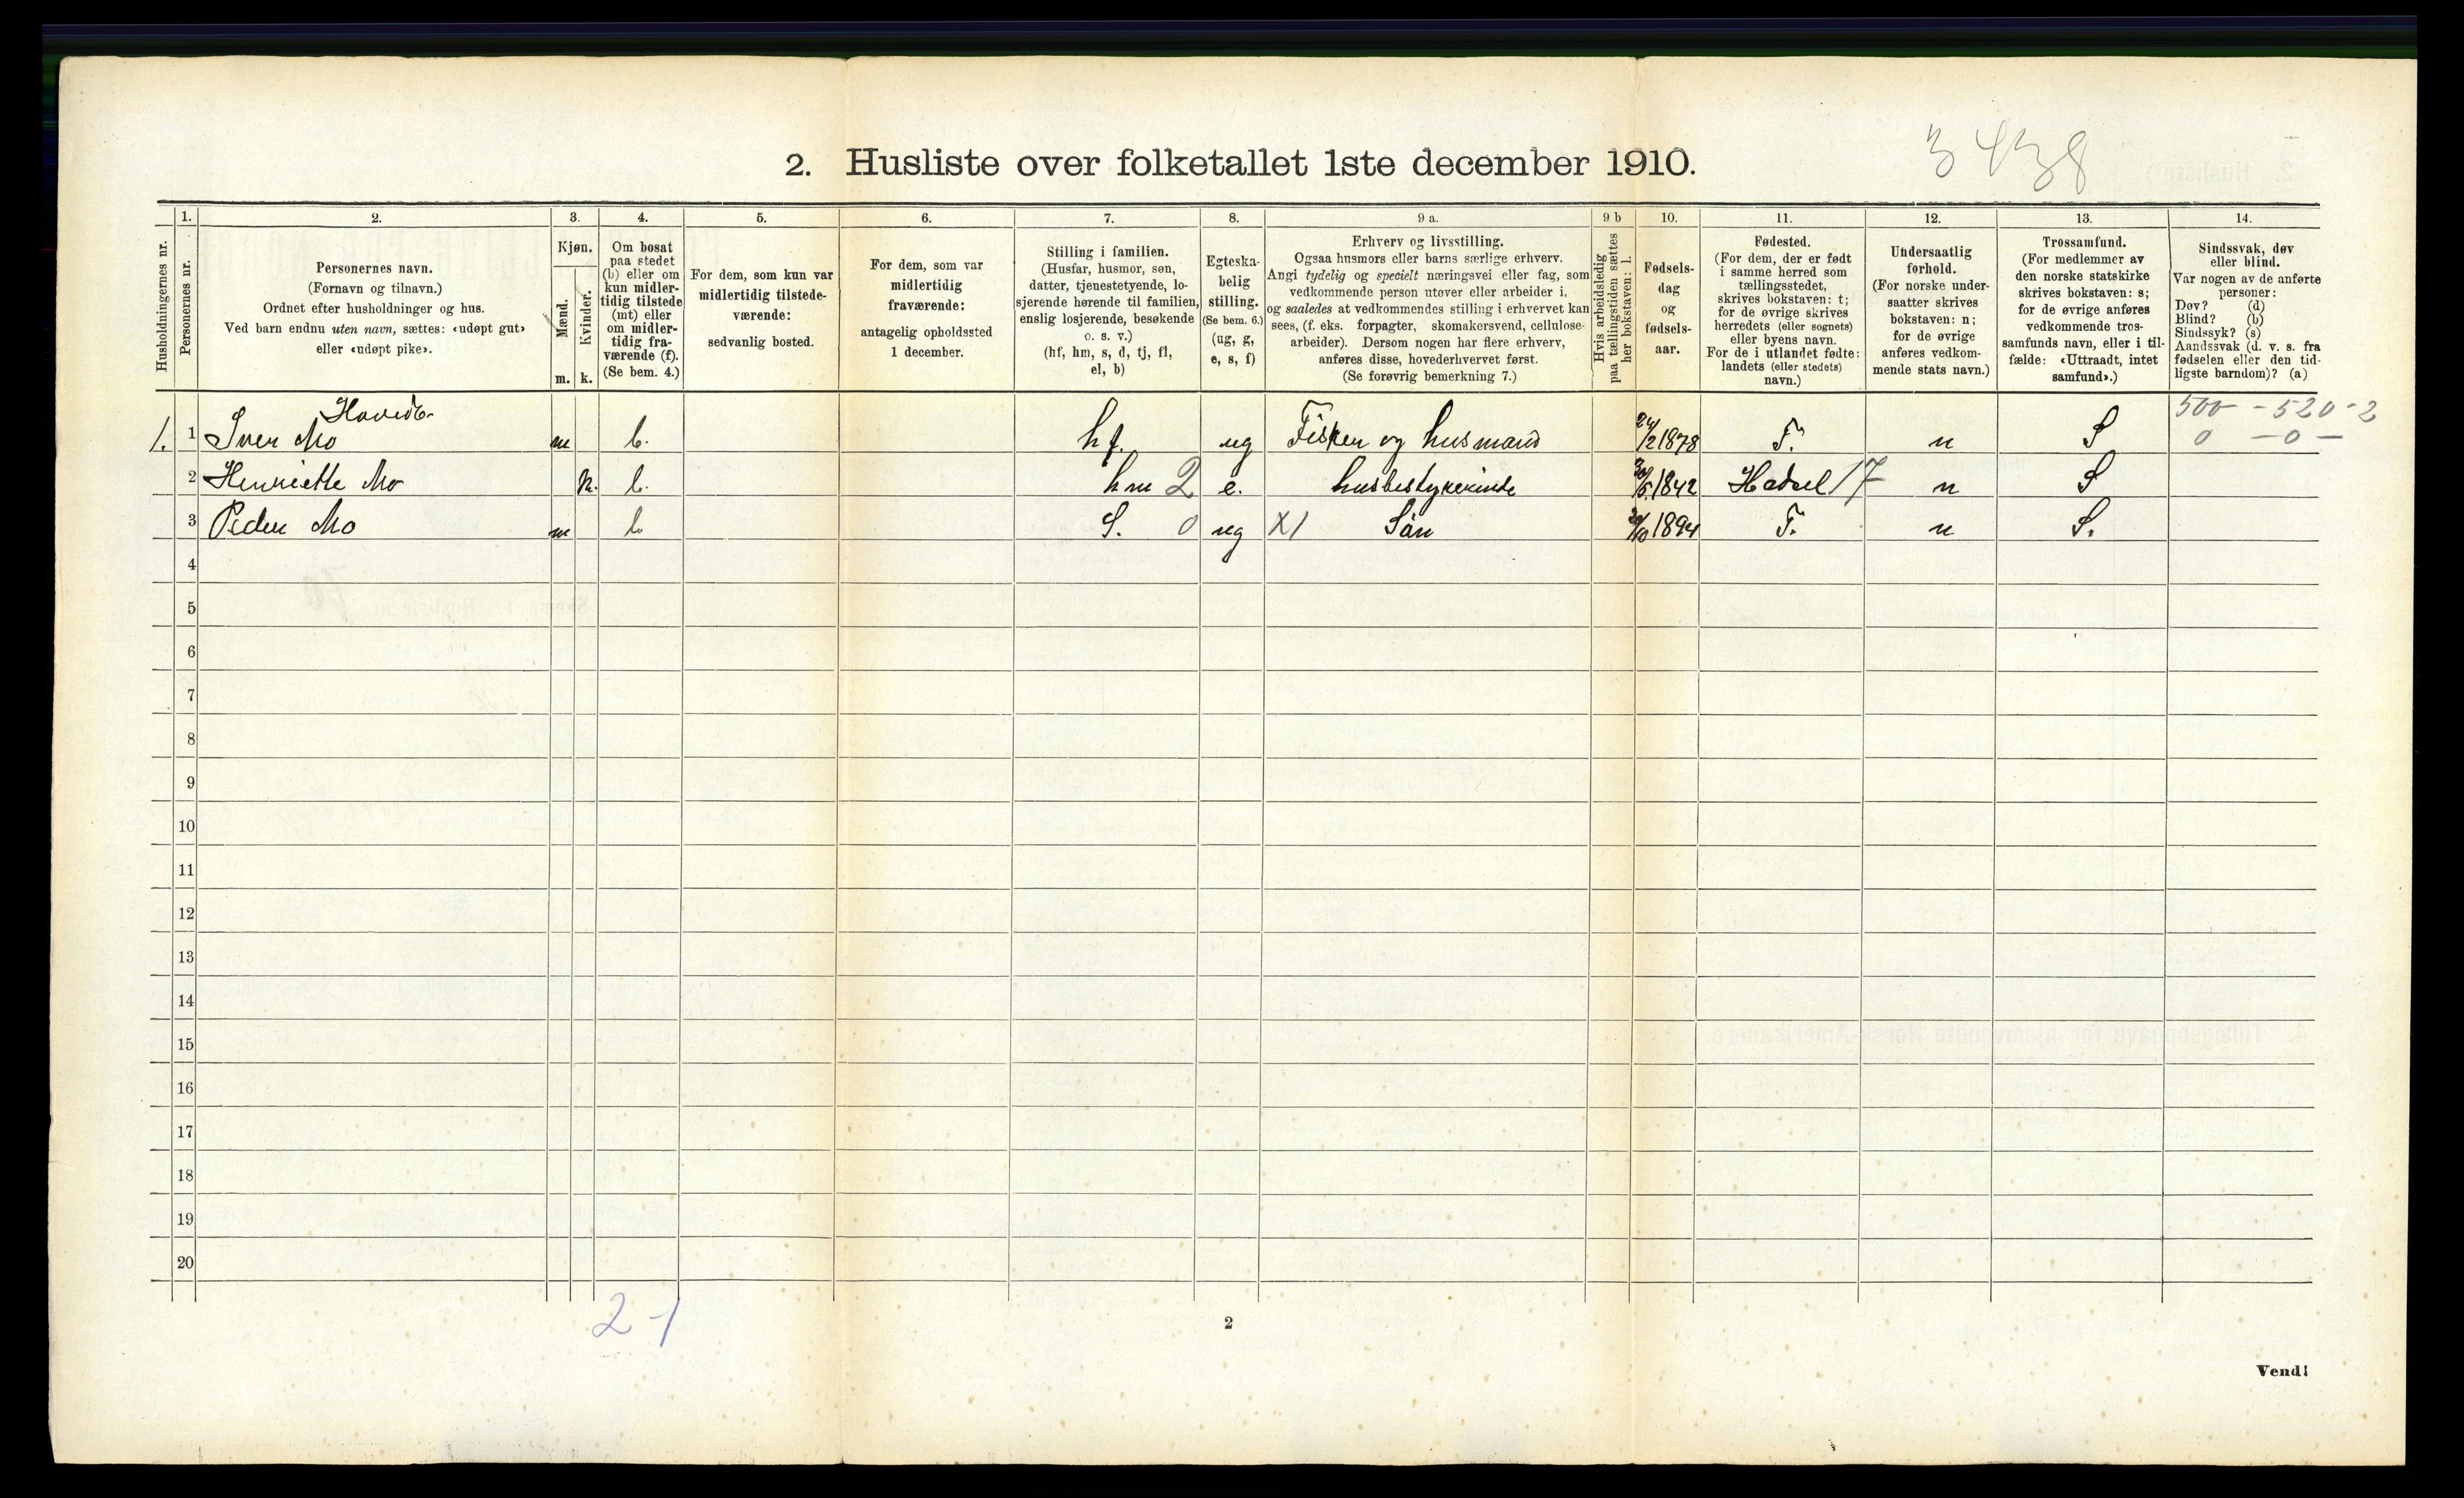 2. Husliste over folketallet 1ste december 1910.
3438
1. 2. 3. 4. 5. 6. 7. 8. 9 a. 9 b 10. 11. 12. 13. 14.
Husholdningernes nr.
Personernes nr.
Personernes navn.
(Fornavn og tilnavn.)
Ordnet efter husholdninger og hus.
Ved barn endnu uten navn, sættes: «udøpt gut»
eller «udøpt pike».
Kjøn.
Mænd.
Kvinder.
m. k.
Om bosat
paa stedet
(b) eller om
kun midler-
tidig tilstede
(mt) eller
om midler-
tidig fra-
værende (f).
(Se bem. 4.)
For dem, som kun var
midlertidig tilstede-
værende:
sedvanlig bosted.
For dem, som var
midlertidig
fraværende:
antagelig opholdssted
1 december.
Stilling i familien.
(Husfar, husmor, søn,
datter, tjenestetyende, lo-
sjerende hørende til familien,
enslig losjerende, besøkende
o. s. v.)
(hf, hm, s, d, tj, fl,
el, b)
Egteska-
belig
stilling.
(Se bem. 6.)
(ug, g,
e, s, f)
Erhverv og livsstilling.
Ogsaa husmors eller barns særlige erhverv.
Angi tydelig og specielt næringsvei eller fag, som
vedkommende person utøver eller arbeider i,
og saaledes at vedkommendes stilling i erhvervet kan
sees, (f. eks. forpagter, skomakersvend, cellulose-
arbeider). Dersom nogen har flere erhverv,
anføres disse, hovederhvervet først.
(Se forøvrig bemerkning 7.)
Hvis arbeidsledig
paa tællingstiden sættes
her bokstaven: l.
Fødsels-
dag
og
fødsels-
aar.
Fødested.
(For dem, der er født
i samme herred som
tællingsstedet,
skrives bokstaven: t;
for de øvrige skrives
herredets (eller sognets)
eller byens navn.
For de i utlandet fødte:
landets (eller stedets)
navn.)
Undersaatlig
forhold.
(For norske under-
saatter skrives
bokstaven: n;
for de øvrige
anføres vedkom-
mende stats navn.)
Trossamfund.
(For medlemmer av
den norske statskirke
skrives bokstaven: s;
for de øvrige anføres
vedkommende tros-
samfunds navn, eller i til-
fælde: «Uttraadt, intet
samfund».)
Sindssvak, døv
eller blind.
Var nogen av de anførte
personer:
Døv? (d)
Blind? (b)
Sindssyk? (s)
Aandssvak (d. v. s. fra
fødselen eller den tid-
ligste barndom)? (a)
500 - 520 - 2
1. 1 Mo m b. hf. ug Fisker og husmand 24/2 1878 T. n S 0 - 0 -
2 Henriette Mo k. b. hm 2 e. husbestyrerinde 1842 Hadsel 17 n S
3 Peder Mo m b S. 0 ug X1 Sön 1894 T. n S.
4
5
6
7
8
9
10
11
12
13
14
15
16
17
18
19
20
2-1
2
Vend!